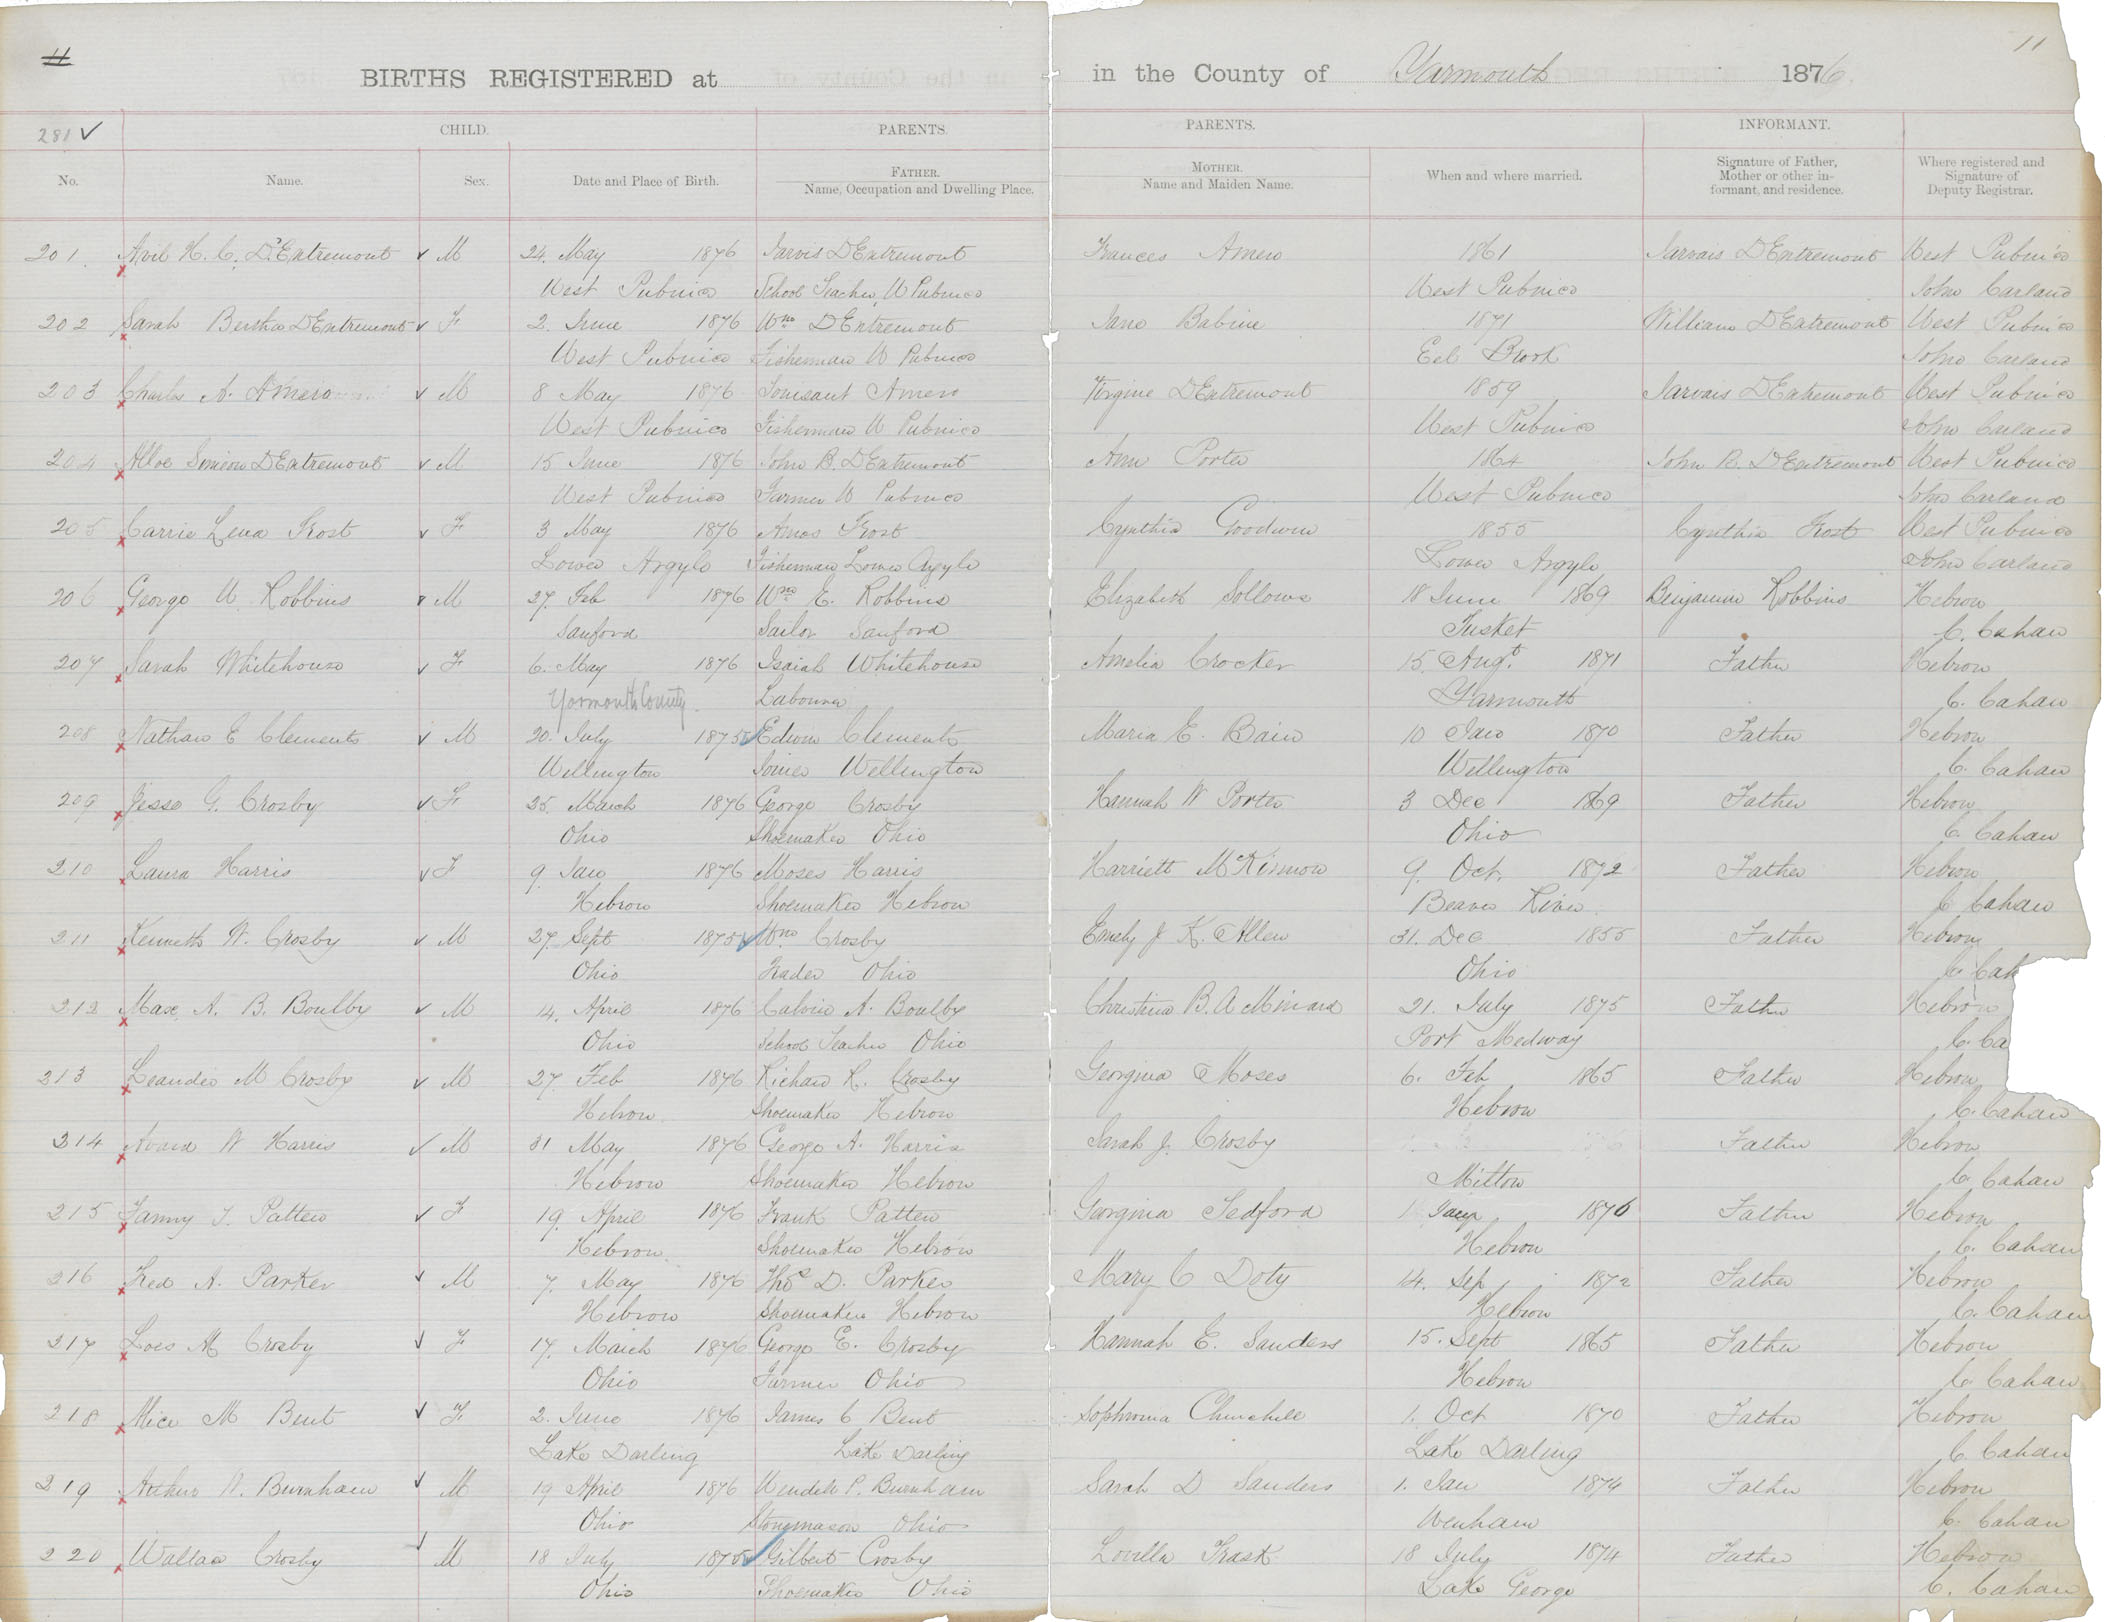 11
11
BIRTHS REGISTERED at in the County of Yarmouth 1876.
281 ✓
CHILD. PARENTS. PARENTS. INFORMANT.
No. Name. Sex. Date and Place of Birth. FATHER. Name, Occupation and Dwelling Place. MOTHER. Name and Maiden Name. When and where married. Signature of Father, Mother or other informant, and residence. Where registered and Signature of Deputy Registrar.
201. Avil H. C. D'Entremont M 24. May 1876 Jarvis DEntremont Frances Amero 1861 Jarvais DEntremont West Pubnico
West Pubnico School Teacher, W Pubnico West Pubnico John Carland
202 Sarah Bertha DEntremont F 2. June 1876 Wm DEntremont Jane Babine 1871 William DEntremont West Pubnico
West Pubnico Fisherman W Pubnico Eel Brook John Carland
203 Charles A. Amero M 8 May 1876 Amero Virgine DEntremont 1859 Jarvais DEntremont West Pubnico
West Pubnico Fisherman W Pubnico West Pubnico John Carland
204 Simeon DEntremont M 15 June 1876 John B. DEntremont Ann Porter 1864 John B. DEntremont West Pubnico
West Pubnico Farmer W Pubnico West Pubnico John Carland
205 Carrie Lena Frost F 3 May 1876 Amos Frost Cynthia Goodwin 1855 Cynthia Frost West Pubnico
Lower Argyle Fisherman Lower Argyle Lower Argyle John Carland
206 George W. Robbins M 27. Feb 1876 Wm E. Robbins Elizabeth Sollows 18 June 1869 Benjamin Robbins Hebron
Sanford Sailor Sanford Tusket C. Cahan
207 Sarah Whitehouse F 6. May 1876 Isaiah Whitehouse Amelia Crocker 15. Augt. 1871 Father Hebron
Yarmouth County. Labourer Yarmouth C. Cahan
208 Nathan E Clements M 20. July 1875 Edwin Clements Maria E. Bain 10 Jan 1870 Father Hebron
Wellington Wellington Wellington C. Cahan
209 Jesse G. Crosby F 25. March 1876 George Crosby Hannah W Porter 3 Dec 1869 Father Hebron
Ohio Shoemaker Ohio Ohio C. Cahan
210 Laura Harris F 9. Jan 1876 Moses Harris Harriett McKinnon 9. Oct. 1872 Father Hebron
Hebron Shoemaker Hebron Beaver River. C. Cahan
211 Kenneth W. Crosby M 27. Sept 1875 Wm Crosby Emely J K. Allen 31. Dec 1855 Father Hebron
Ohio Trader Ohio Ohio C. Cah
212 Max. A. B. Boulby M 14. April 1876 Calvin A. Boulby Christina B. A Minard 21. July 1875 Father Hebron
Ohio School Teacher Ohio Port Medway C. Ca
213 Leander M Crosby M 27. Feb 1876 Richard R. Crosby Georgina Moses 6. Feb 1865 Father Hebron
Hebron Shoemaker Hebron Hebron C. Cahan
214 Avard W Harris M 31 May 1876 George A. Harris Sarah J. Crosby Father Hebron
Hebron Shoemaker Hebron Milton C. Cahan
215 Fanny T. Patten F 19. April 1876 Frank Patten Georgina Tedford 1 1876 Father Hebron
Hebron Shoemaker Hebron Hebron C. Cahan
216 Fred A. Parker M 7. May 1876 Thos D. Parker Mary C Doty 14. Sep 1872 Father Hebron
Hebron Shoemaker Hebron Hebron C. Cahan
217 Lois M Crosby F 17. March 1876 George E. Crosby Hannah E. Sanders 15. Sept 1865 Father Hebron
Ohio Farmer Ohio Hebron C. Cahan
218 Alice M Bent F 2. June 1876 James C Bent Sophronia Churchill 1. Oct 1870 Father Hebron
Lake Darling Lake Darling Lake Darling C Cahan
219 Arthur W. Burnham M 19 April 1876 Wendell P. Burnham Sarah D Sanders 1. Jan 1874 Father Hebron
Ohio Stonemason Ohio Wenham C. Cahan
220 Wallace Crosby M 18 July 1875 Gilbert Crosby Lovilla Trask 18 July 1874 Father Hebron
Ohio Shoemaker Ohio Lake George C. Cahan